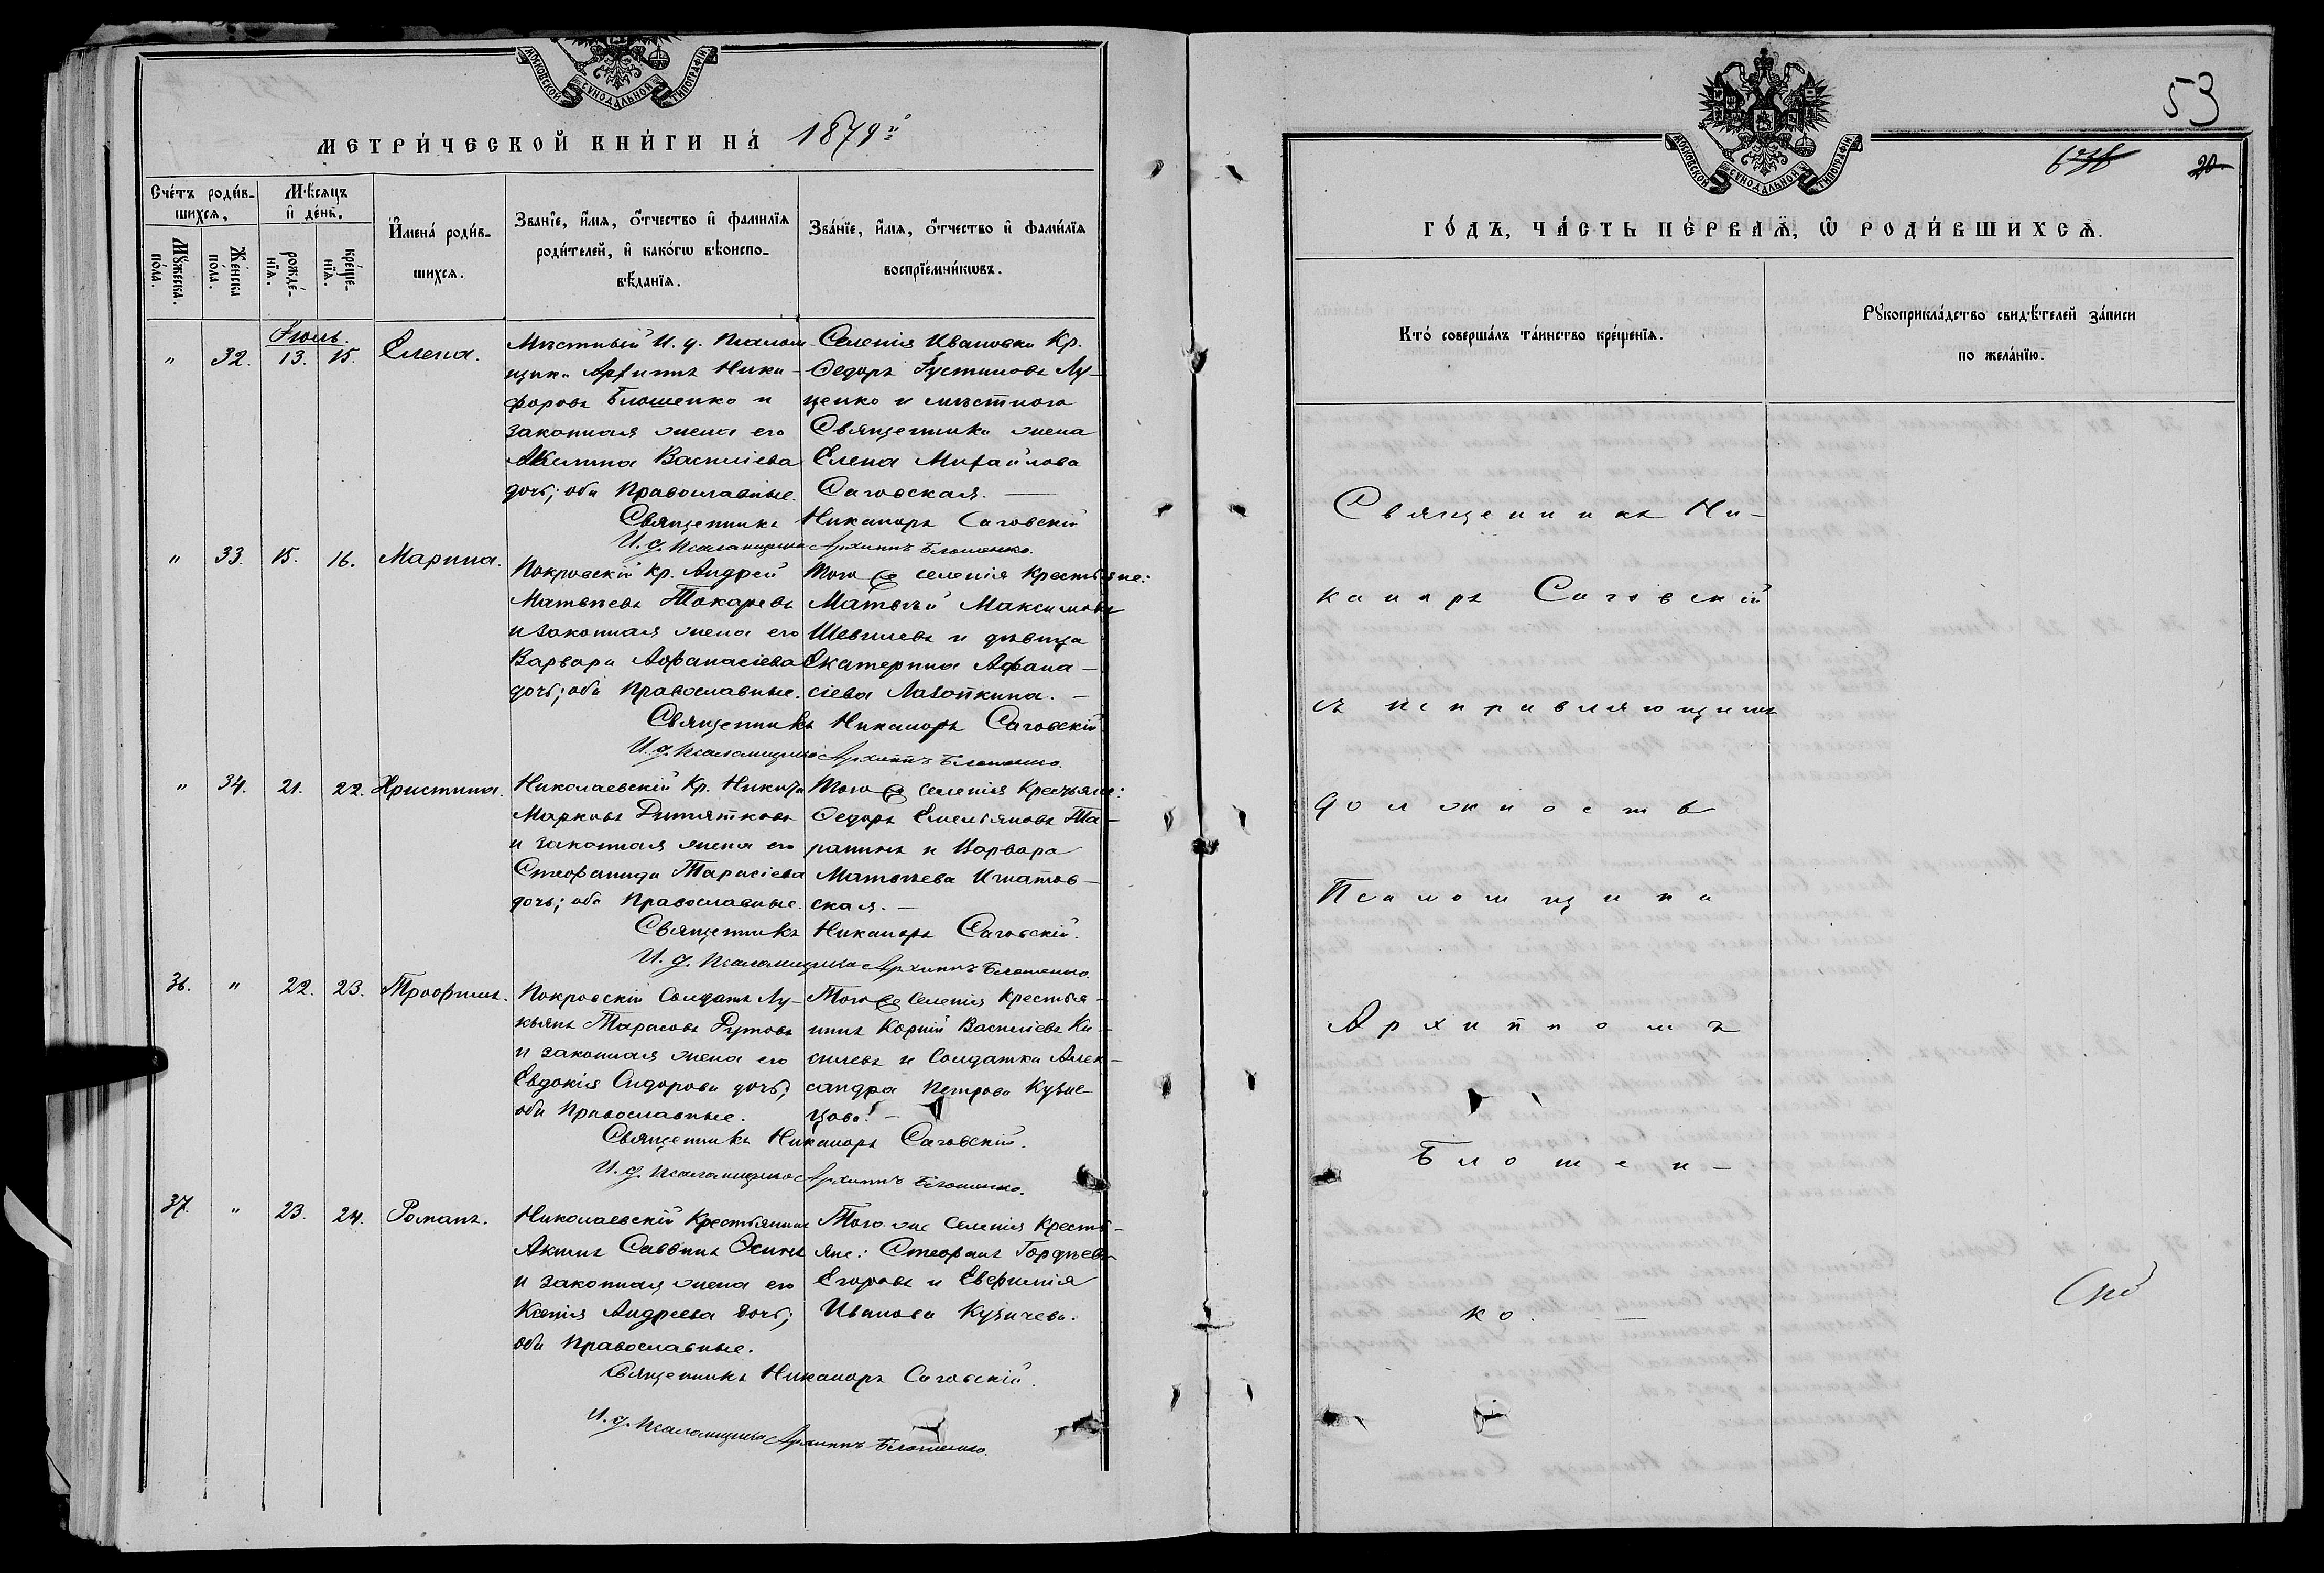 МОСКОВСКОЙ СѴНОДАЛЬНОЙ ТИПОГРАФІИ
МЕТРИ́ЧЕСКОЙ КНИ́ГИ НА́ 1879й
Сче́тъ роди́вшихся,
Мѣ́сяцъ и҆ де́нь.
И҆мена́ роди́вшихся.
Зва́нїе, и҆́мя, ѻ҆́тчество и҆ фами́лїя
роди́телей, и҆ како́гѡ вѣроиспо-
вѣ́данїя.
Зва́нїе, и҆́мя, ѻ҆́тчество и҆ фами́лїя
воспрїе́мникѡвъ.
Мꙋ́жеска по́ла.
Же́нска по́ла.
рожде́нїя.
креще́нїя.
Іюль.
" 32. 13. 15. Елена.
Мѣстный И. д. Псалом-
щик. Архиппъ Ники-
форовъ Блошенко и
законная жена его
Акилина Василіева
дочь; оба Православные.
Селенія Ивановки Кр.
Ѳедоръ Іустиновъ Лу-
ценко и мѣстного
Священника жена
Елена Михайлова
Саговская. —
Священникъ Никаноръ Саговскій
И. д. Псаломщика Архиппъ Блошенко.
" 33. 15. 16. Марина.
Покровскій Кр. Андрей
Матвѣевъ Токаревъ
и законная жена его
Варвара Афанасіева
дочь; оба Православные.
Того же селенія Крестьяне:
Матвѣй Максимовъ
Шевилевъ и дѣвица
Екатерина Афана-
сіева Лазопкина. —
Священникъ Никаноръ Саговскій
И. д. Псаломщика Архиппъ Блошенко.
" 34. 21. 22. Христина.
Николаевскій Кр. Никита
Марковъ Дитятковъ
и законная жена его
Стефанида Тарасіева
дочь; оба Православные.
Того же селенія Крестьяне:
Ѳедоръ Емельяновъ Та-
ранинъ и Варвара
Матвѣева Игнатов-
ская. —
Священникъ Никаноръ Саговскій.
И. д. Псаломщика Архиппъ Блошенко.
36. " 22. 23. Трофимъ.
Покровскій Солдатъ Лу-
кьянъ Тарасовъ Дутовъ
и законная жена его
Евдокія Сидорова дочь;
оба Православные.
Того же селенія Крестья-
нинъ Корній Василіевъ Ки-
силевъ и Солдатка Алек-
сандра Петрова Кузне-
цова. —
Священникъ Никаноръ Саговскій.
И. д. Псаломщика Архиппъ Блошенко.
37. " 23. 24. Романъ.
Николаевскій Крестьянинъ
Акимъ Саввинъ Осинъ
и законная жена его
Ксенія Андреева дочь;
оба Православные.
Того же селенія Кресть-
яне: Стефанъ Гордѣевъ
Егоровъ и Евфимія
Иванова Кузичева.
Священникъ Никаноръ Саговскій.
И. д. Псаломщика Архиппъ Блошенко.
53
МОСКОВСКОЙ СѴНОДАЛЬНОЙ ТИПОГРАФІИ
20
ГО́ДЪ, ЧА́СТЬ ПЕ́РВАЯ, Ѡ҆ РОДИ́ВШИХСЯ.
Кто́ соверша́лъ та́инство креще́нїя.
Рꙋкоприкла́дство свидѣ́телей за́писи
по жела́нїю.
Священникъ Ни-
каноръ Саговскій
съ исправляющимъ
должность
Псаломщика
Архиппомъ
Блошен-
ко. —